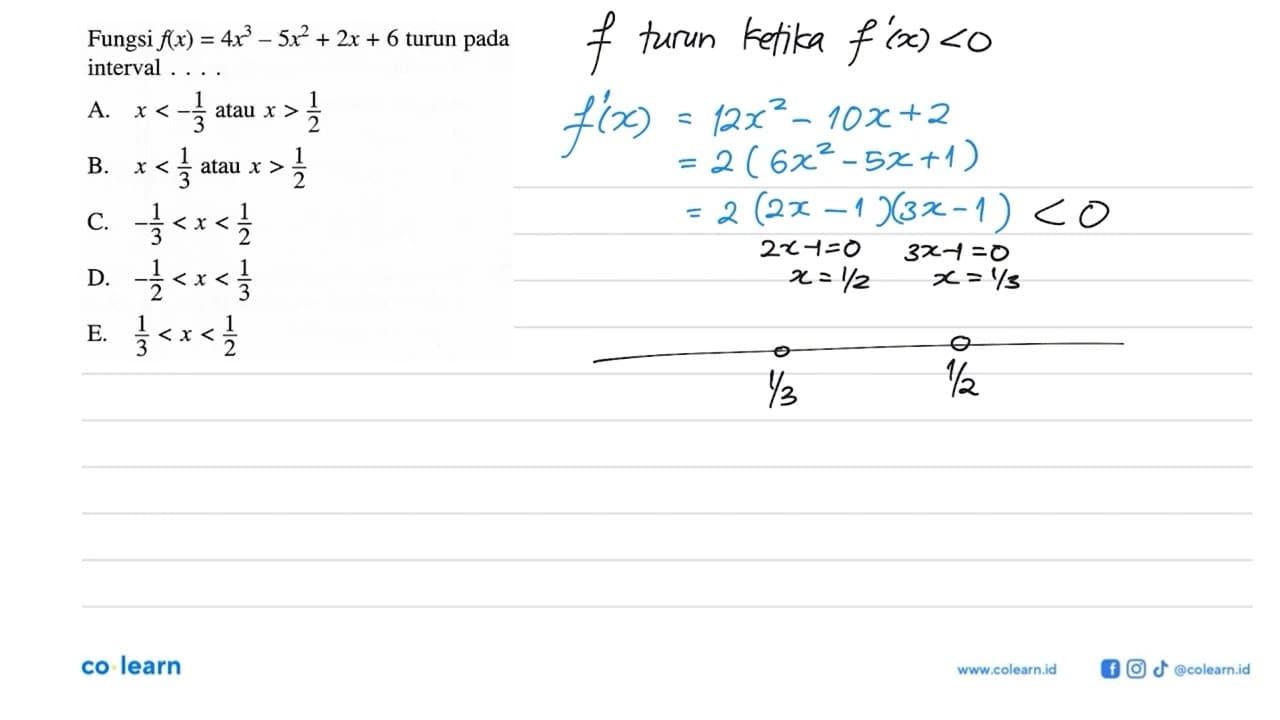 Fungsi f(x) = 4x³ – 5x² + 2x + 6 turun pada
interval . . . .
A. x < -1/3 atau x > 1/2
B. x < 1/3 atau x > 1/2
C. -1/3 < x < 1/2
D. -1/2 < x < 1/3
E. 1/3 < x < 1/2
f turun ketika f'(x) < 0
f'(x) = 12x² - 10x + 2
= 2 (6x² - 5x + 1)
= 2 (2x - 1)(3x - 1) < 0
2x-1=0 3x-1=0
x = 1/2 x = 1/3
1/3 1/2
co learn
www.colearn.id @colearn.id